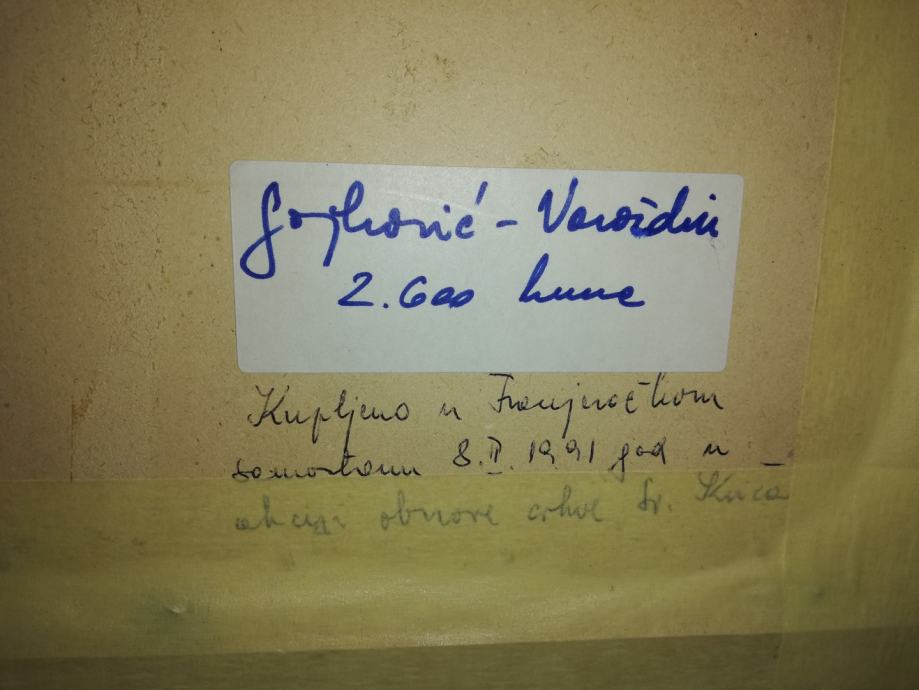 Gojković - Varaždin
2.600 kune
Kupljeno u Franjevačkom
samostanu 8.II. 1991 god u
akciji obnove crkve Sv.